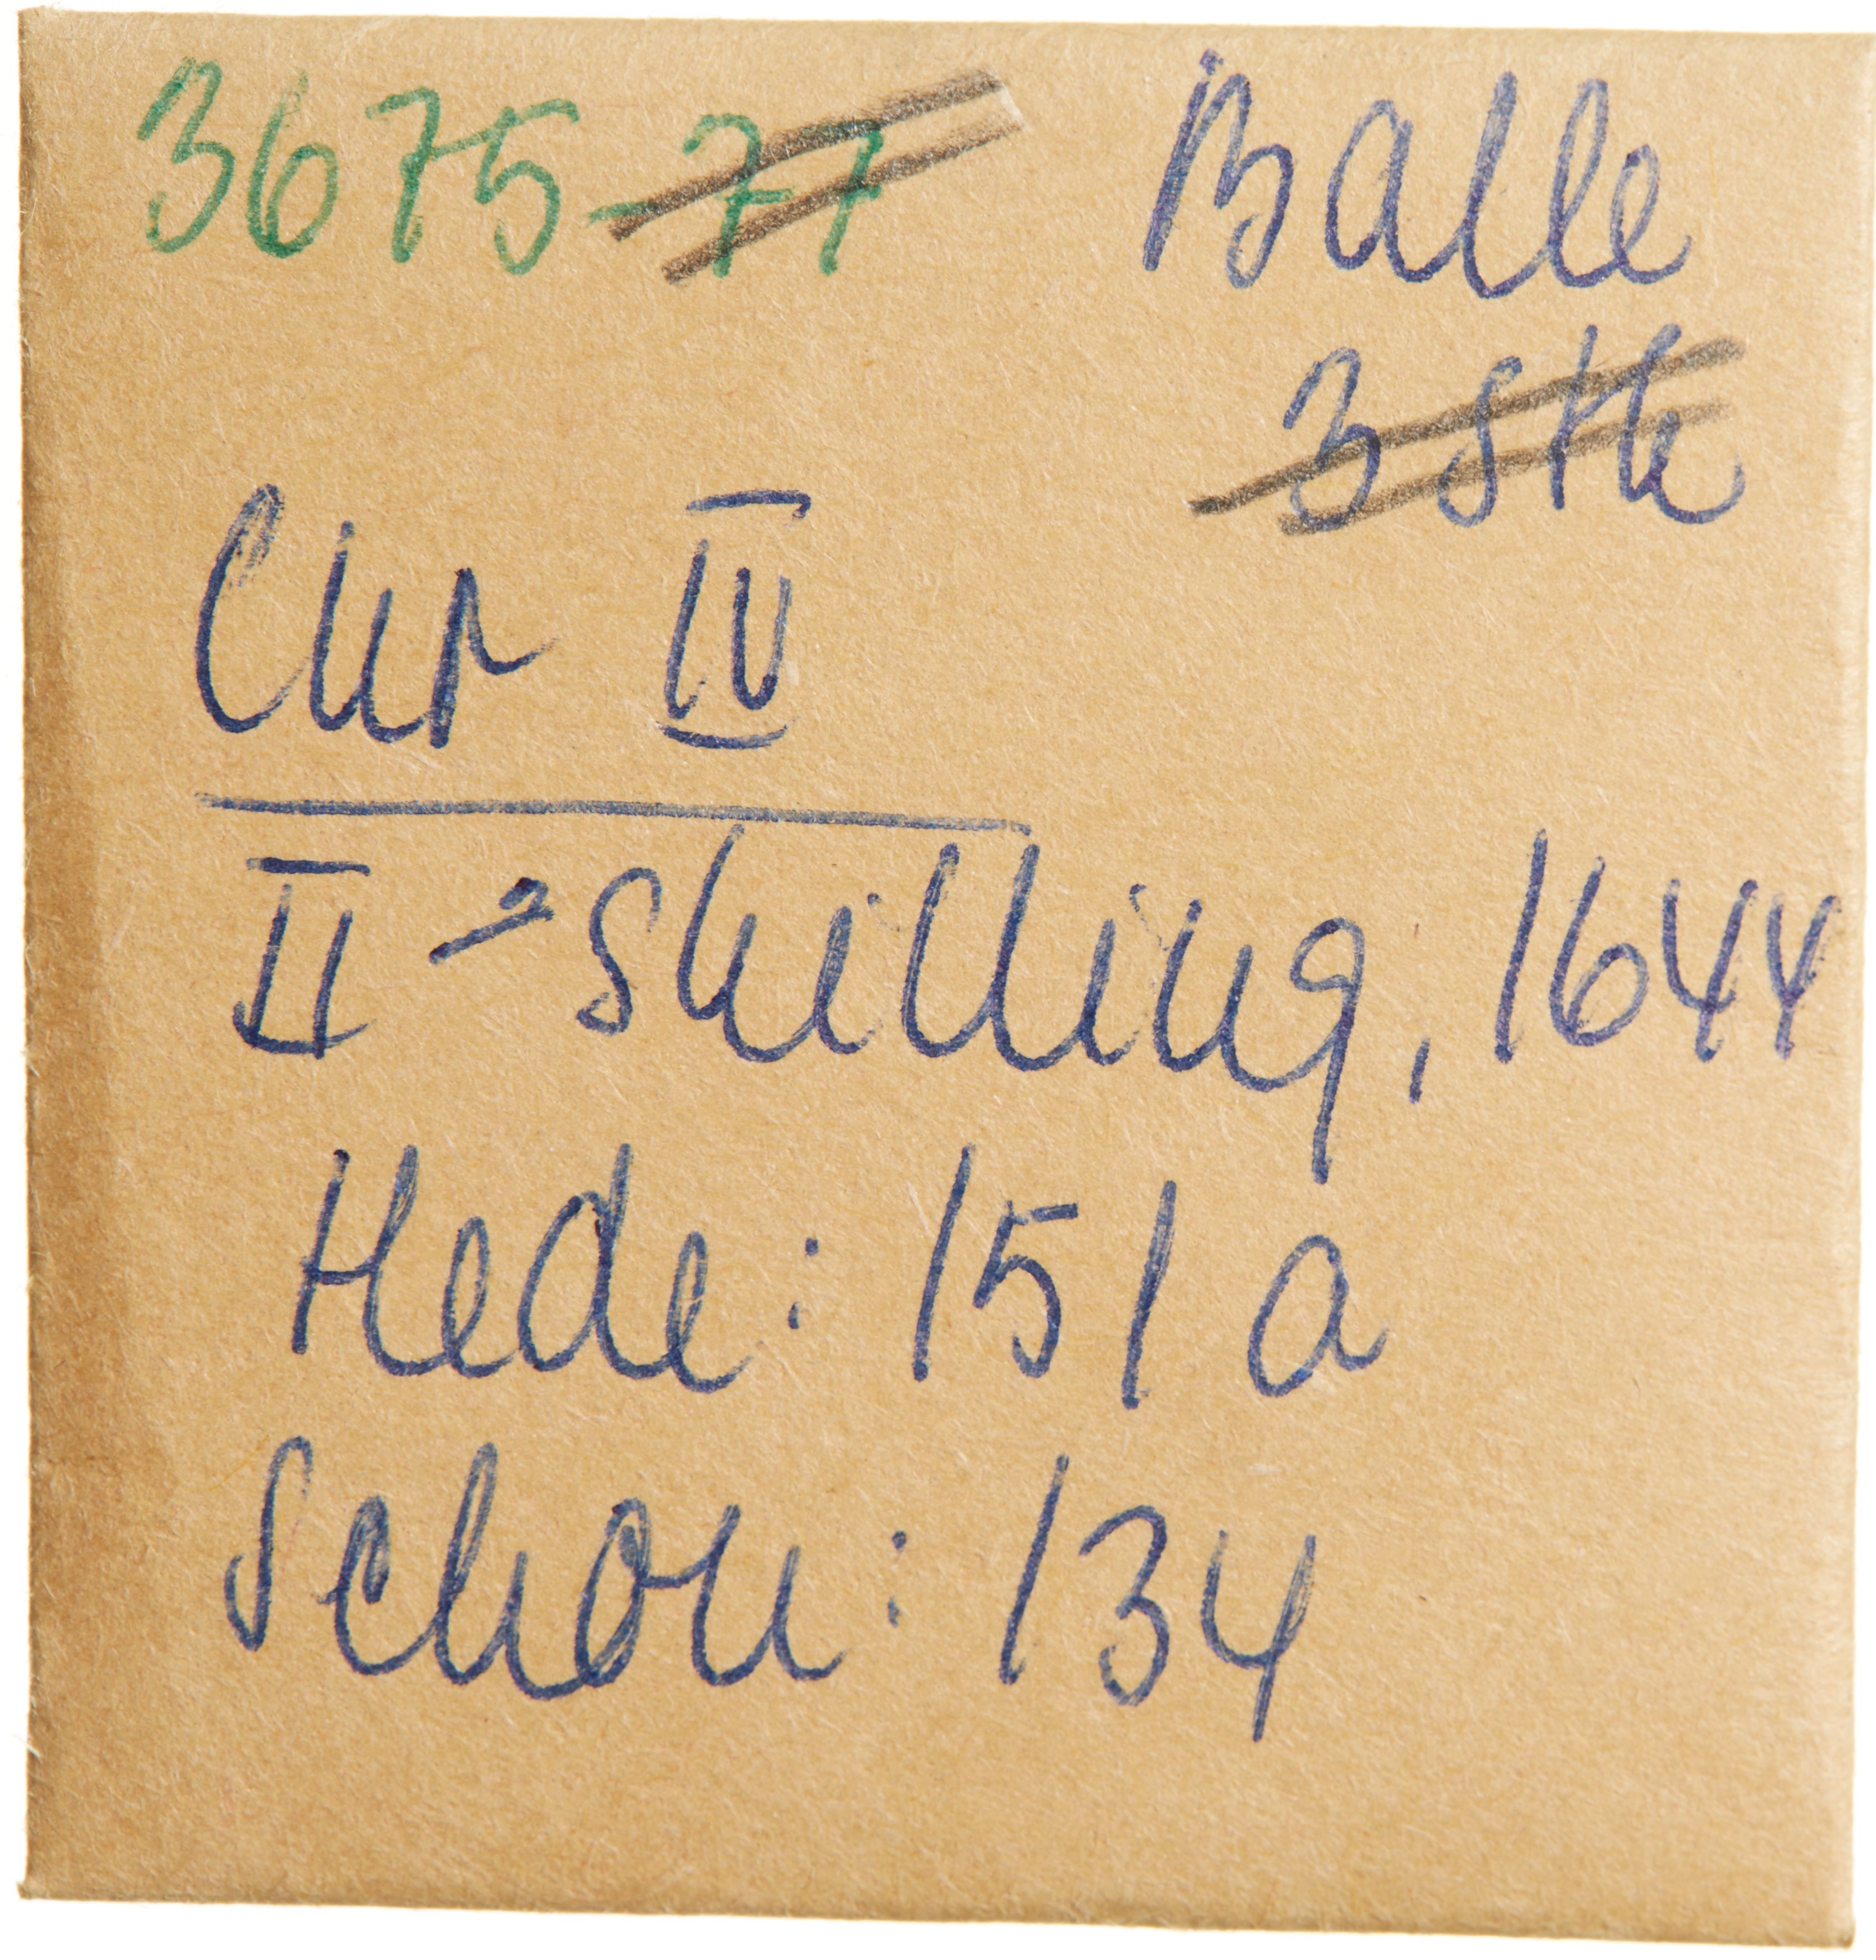 3675-77 Balle
3 stk
Chr IV
II-skilling, 1644
Hede: 151 a
Schou: 134